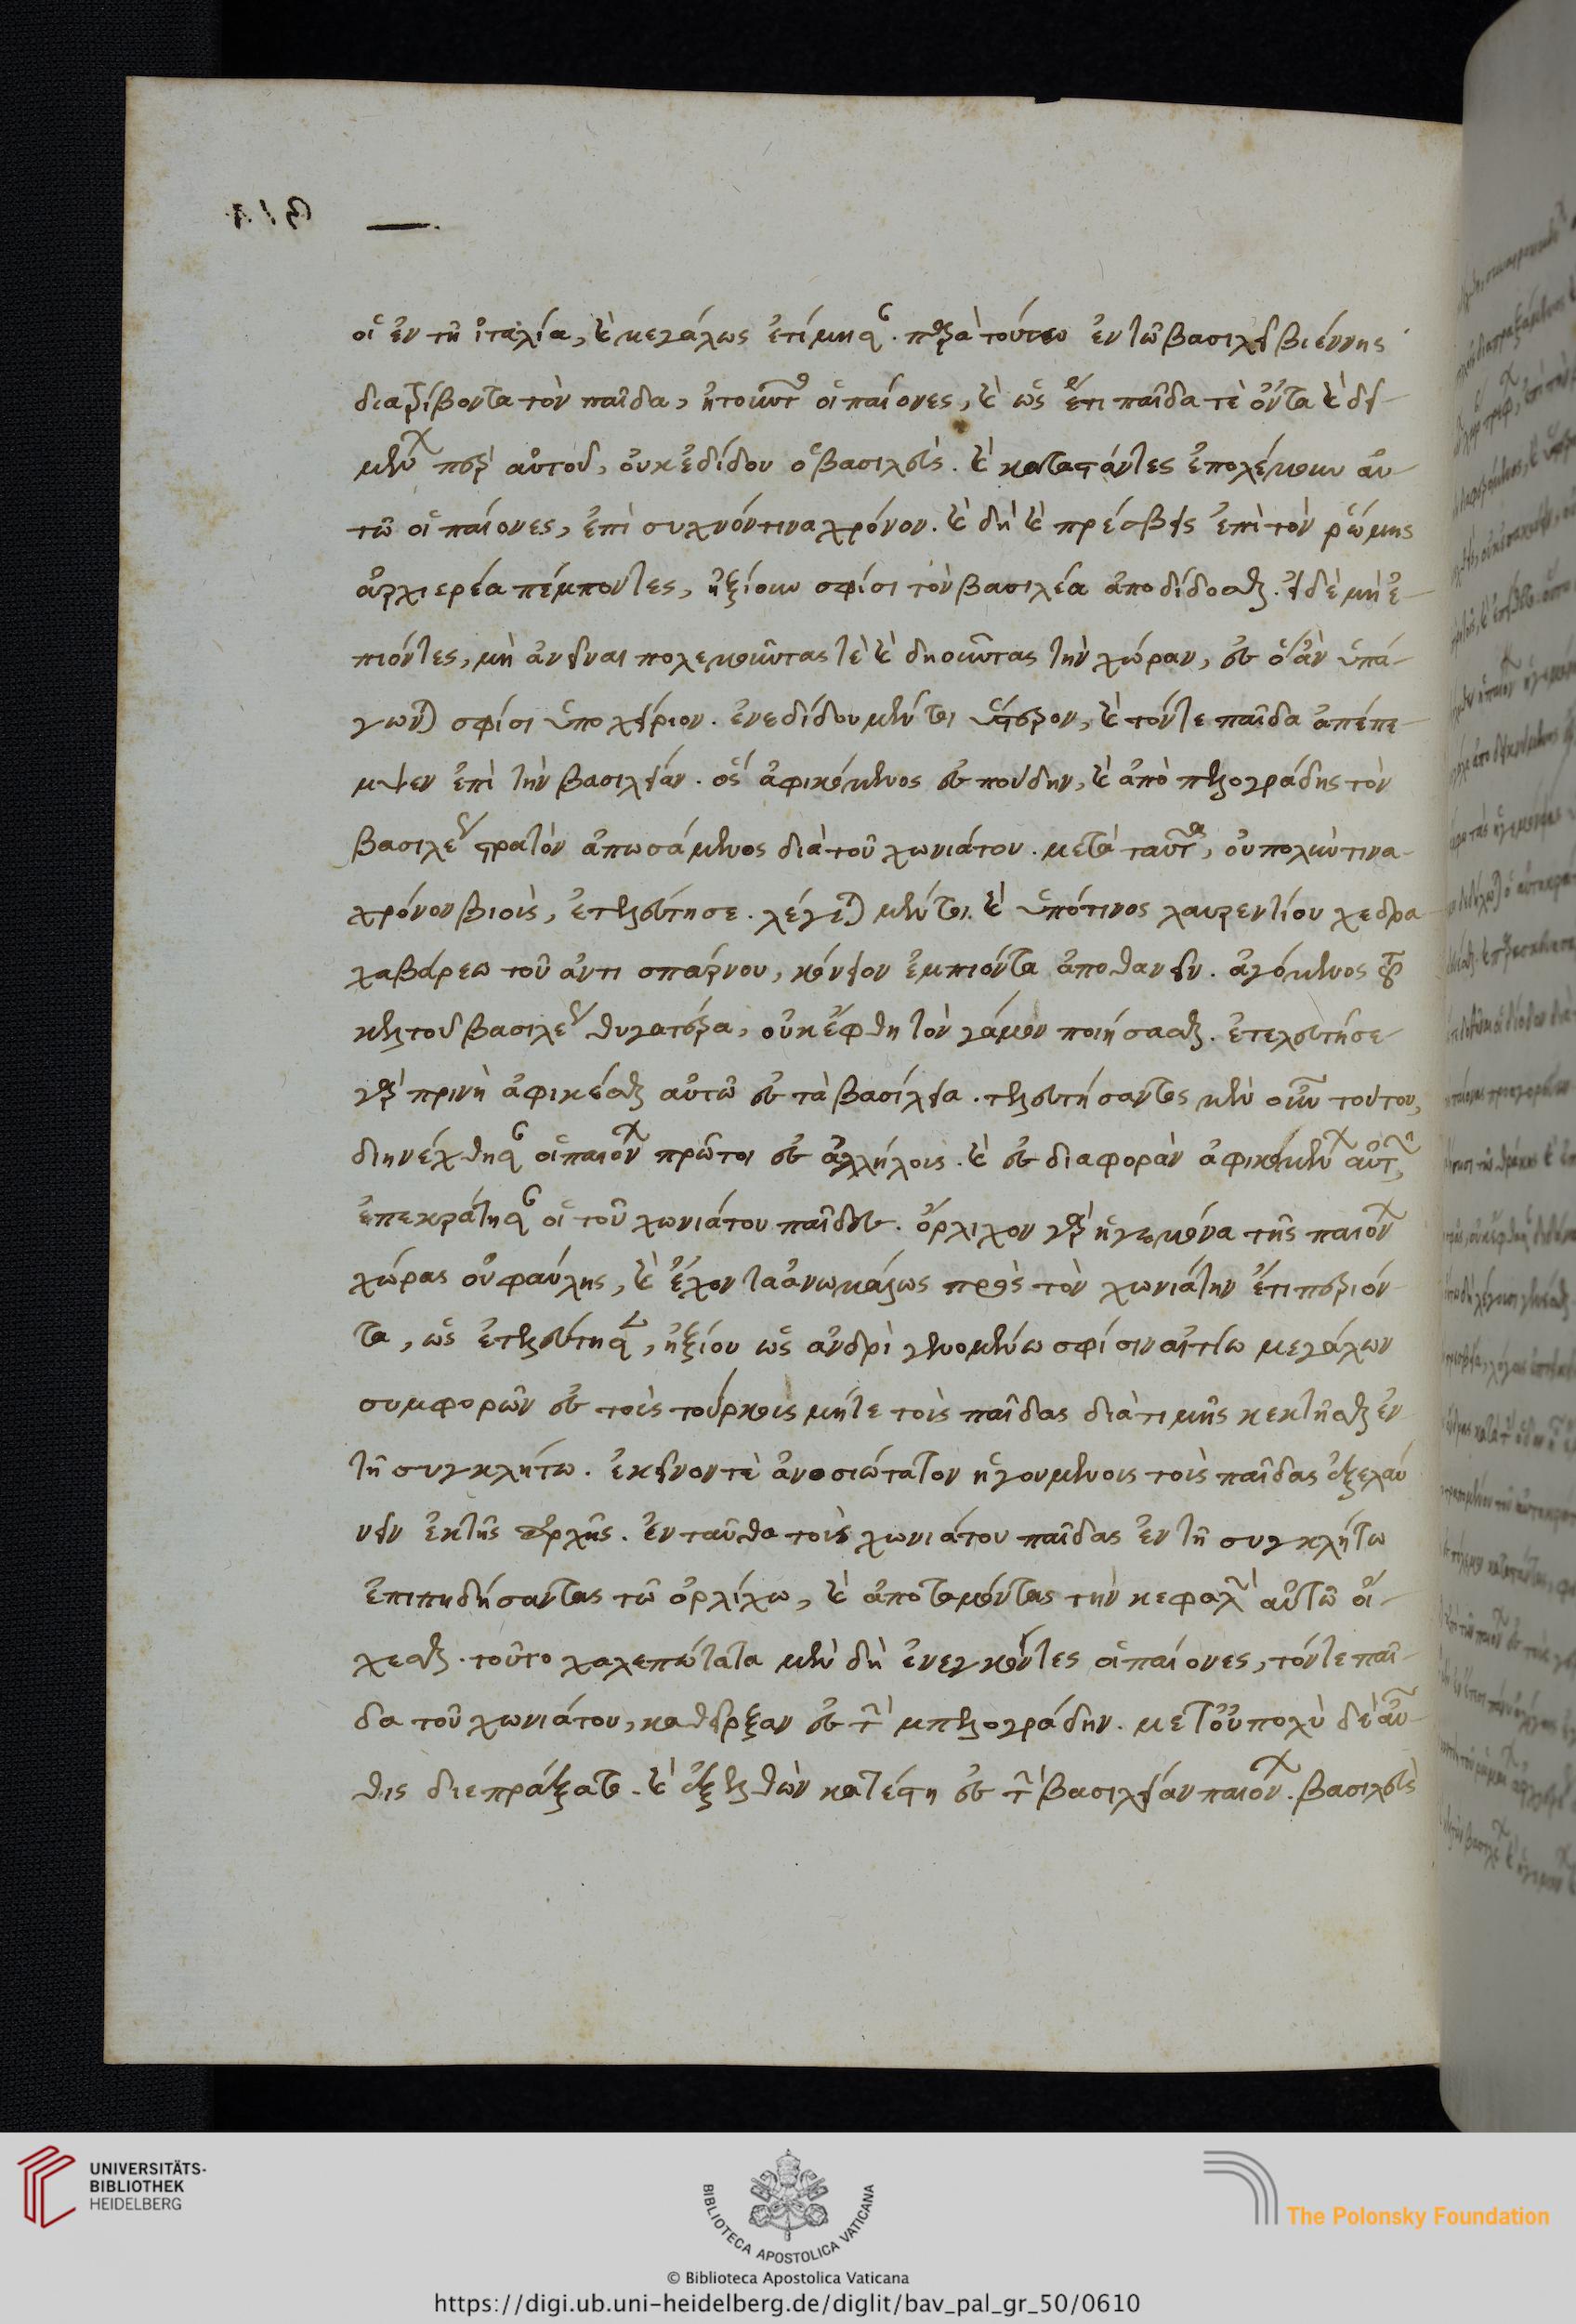 οἱ ἐν τῇ ἰταλίᾳ, καὶ μεγάλως ἐτίμησαν. παρὰ τούτω ἐν τῶ βασιλεῖ βιέννης
διατρίβοντα τὸν παῖδα, ἠτοῦντο οἱ παίονες, καὶ ὡς ἔτι παῖδα τὲ ὄντα καὶ δε-
μένων περὶ αὐτοῦ, οὐκ ἐδίδου ὁ βασιλεὺς. καὶ καταστάντες ἐπολέμουν αὐ-
τῶ οἱ παίονες, ἐπὶ συχνόν τινα χρόνον. καὶ δὴ καὶ πρέσβεις ἐπὶ τὸν ῥώμης
ἀρχιερέα πέμποντες, ἠξίουν σφίσι τὸν βασιλέα ἀποδίδοσθαι. εἰ δὲ μὴ ἐ-
πιόντες, μὴ ἀνεῖναι πολεμοῦντας τὲ καὶ δηοῦντας τὴν χώραν, ἐς ὃ ἂν ὑπά-
γωνται σφίσι ὑποχείριον. ἐνεδίδου μέντοι ὕστερον, καὶ τόν τε παῖδα ἀπέπε-
μψεν ἐπὶ τὴν βασιλείαν. ὃς ἀφικόμενος ἐς πούδην, καὶ ἀπὸ πελογράδης τὸν
βασιλέως στρατὸν ἀπωσάμενος διὰ τοῦ χωνιάτου. μετὰ ταῦτα, οὐ πολὺν τινα
χρόνον βιοὺς, ἐτελεύτησε. λέγεται μέντοι καὶ ὑπό τινος λαυρεντίου χεδρα
χαβάρεω τοῦ ἀντι σπάρνου, κώνειον ἐμπιόντα ἀποθανεῖν. ἀγόμενος τὴν
κελτοῦ βασιλέως θυγατέρα, οὐκ ἔφθη τὸν γάμον ποιήσασθαι. ἐτελεύτησε
γὰρ πρινὴ ἀφικέσθαι αὐτῶ ἐς τὰ βασίλεια. τελευτήσαντος μὲν οὖν τούτου,
διηνέχθησαν οἱ παιόνων πρῶτοι ἐς ἀλλήλους. καὶ ἐς διαφορὰν ἀφικομένων αὐτῶν,
ἐπεκράτησαν οἱ τοῦ χωνιάτου παῖδες. ὄρλιχον γὰρ ἡγεμόνα τῆς παιόνων
χώρας οὐ φαύλης, καὶ ἔχοντα ἀνωμάλως πρὸς τὸν χωνιάτην ἔτι περιόν-
τα, ὡς ἐτελεύτησεν, ἠξίου ὡς ἀνδρὶ γενομένω σφίσιν αἰτίω μεγάλων
συμφορῶν ἐς τοὺς τούρκους μήτε τοὺς παῖδας διὰ τιμῆς κεκτῆσθαι ἐν
τῇ συγκλήτω. ἐκεῖνον τὲ ἀνοσιώτατον ἡγουμένους τοὺς παῖδας ἐξελαύ
νειν ἐκ τῆς ἀρχῆς. ἐνταῦθα τοὺς χωνιάτου παῖδας ἐν τῇ συγκλήτω
ἐπιπηδήσαντας τῶ ὀρλίχω, καὶ ἀποτεμόντας τὴν κεφαλὴν αὐτῶ οἴ-
χεσθαι. τοῦτο χαλεπώτατα μὲν δὴ ἐνεγκόντες οἱ παίονες, τόν τε παῖ-
δα τοῦ χωνιάτου, καθεῖρξαν ἐς τὴν μπελογράδην. μετ οὐ πολὺ δὲ αὖ
θις διεπράξατο. καὶ ἐξελθὼν κατέστη ἐς τὴν βασιλείαν παιόνων. βασιλεὺς
UNIVERSITÄTS-
BIBLIOTHEK
HEIDELBERG
BIBLIOTECA APOSTOLICA VATICANA
The Polonsky Foundation
© Biblioteca Apostolica Vaticana
https://digi.ub.uni-heidelberg.de/diglit/bav_pal_gr_50/0610